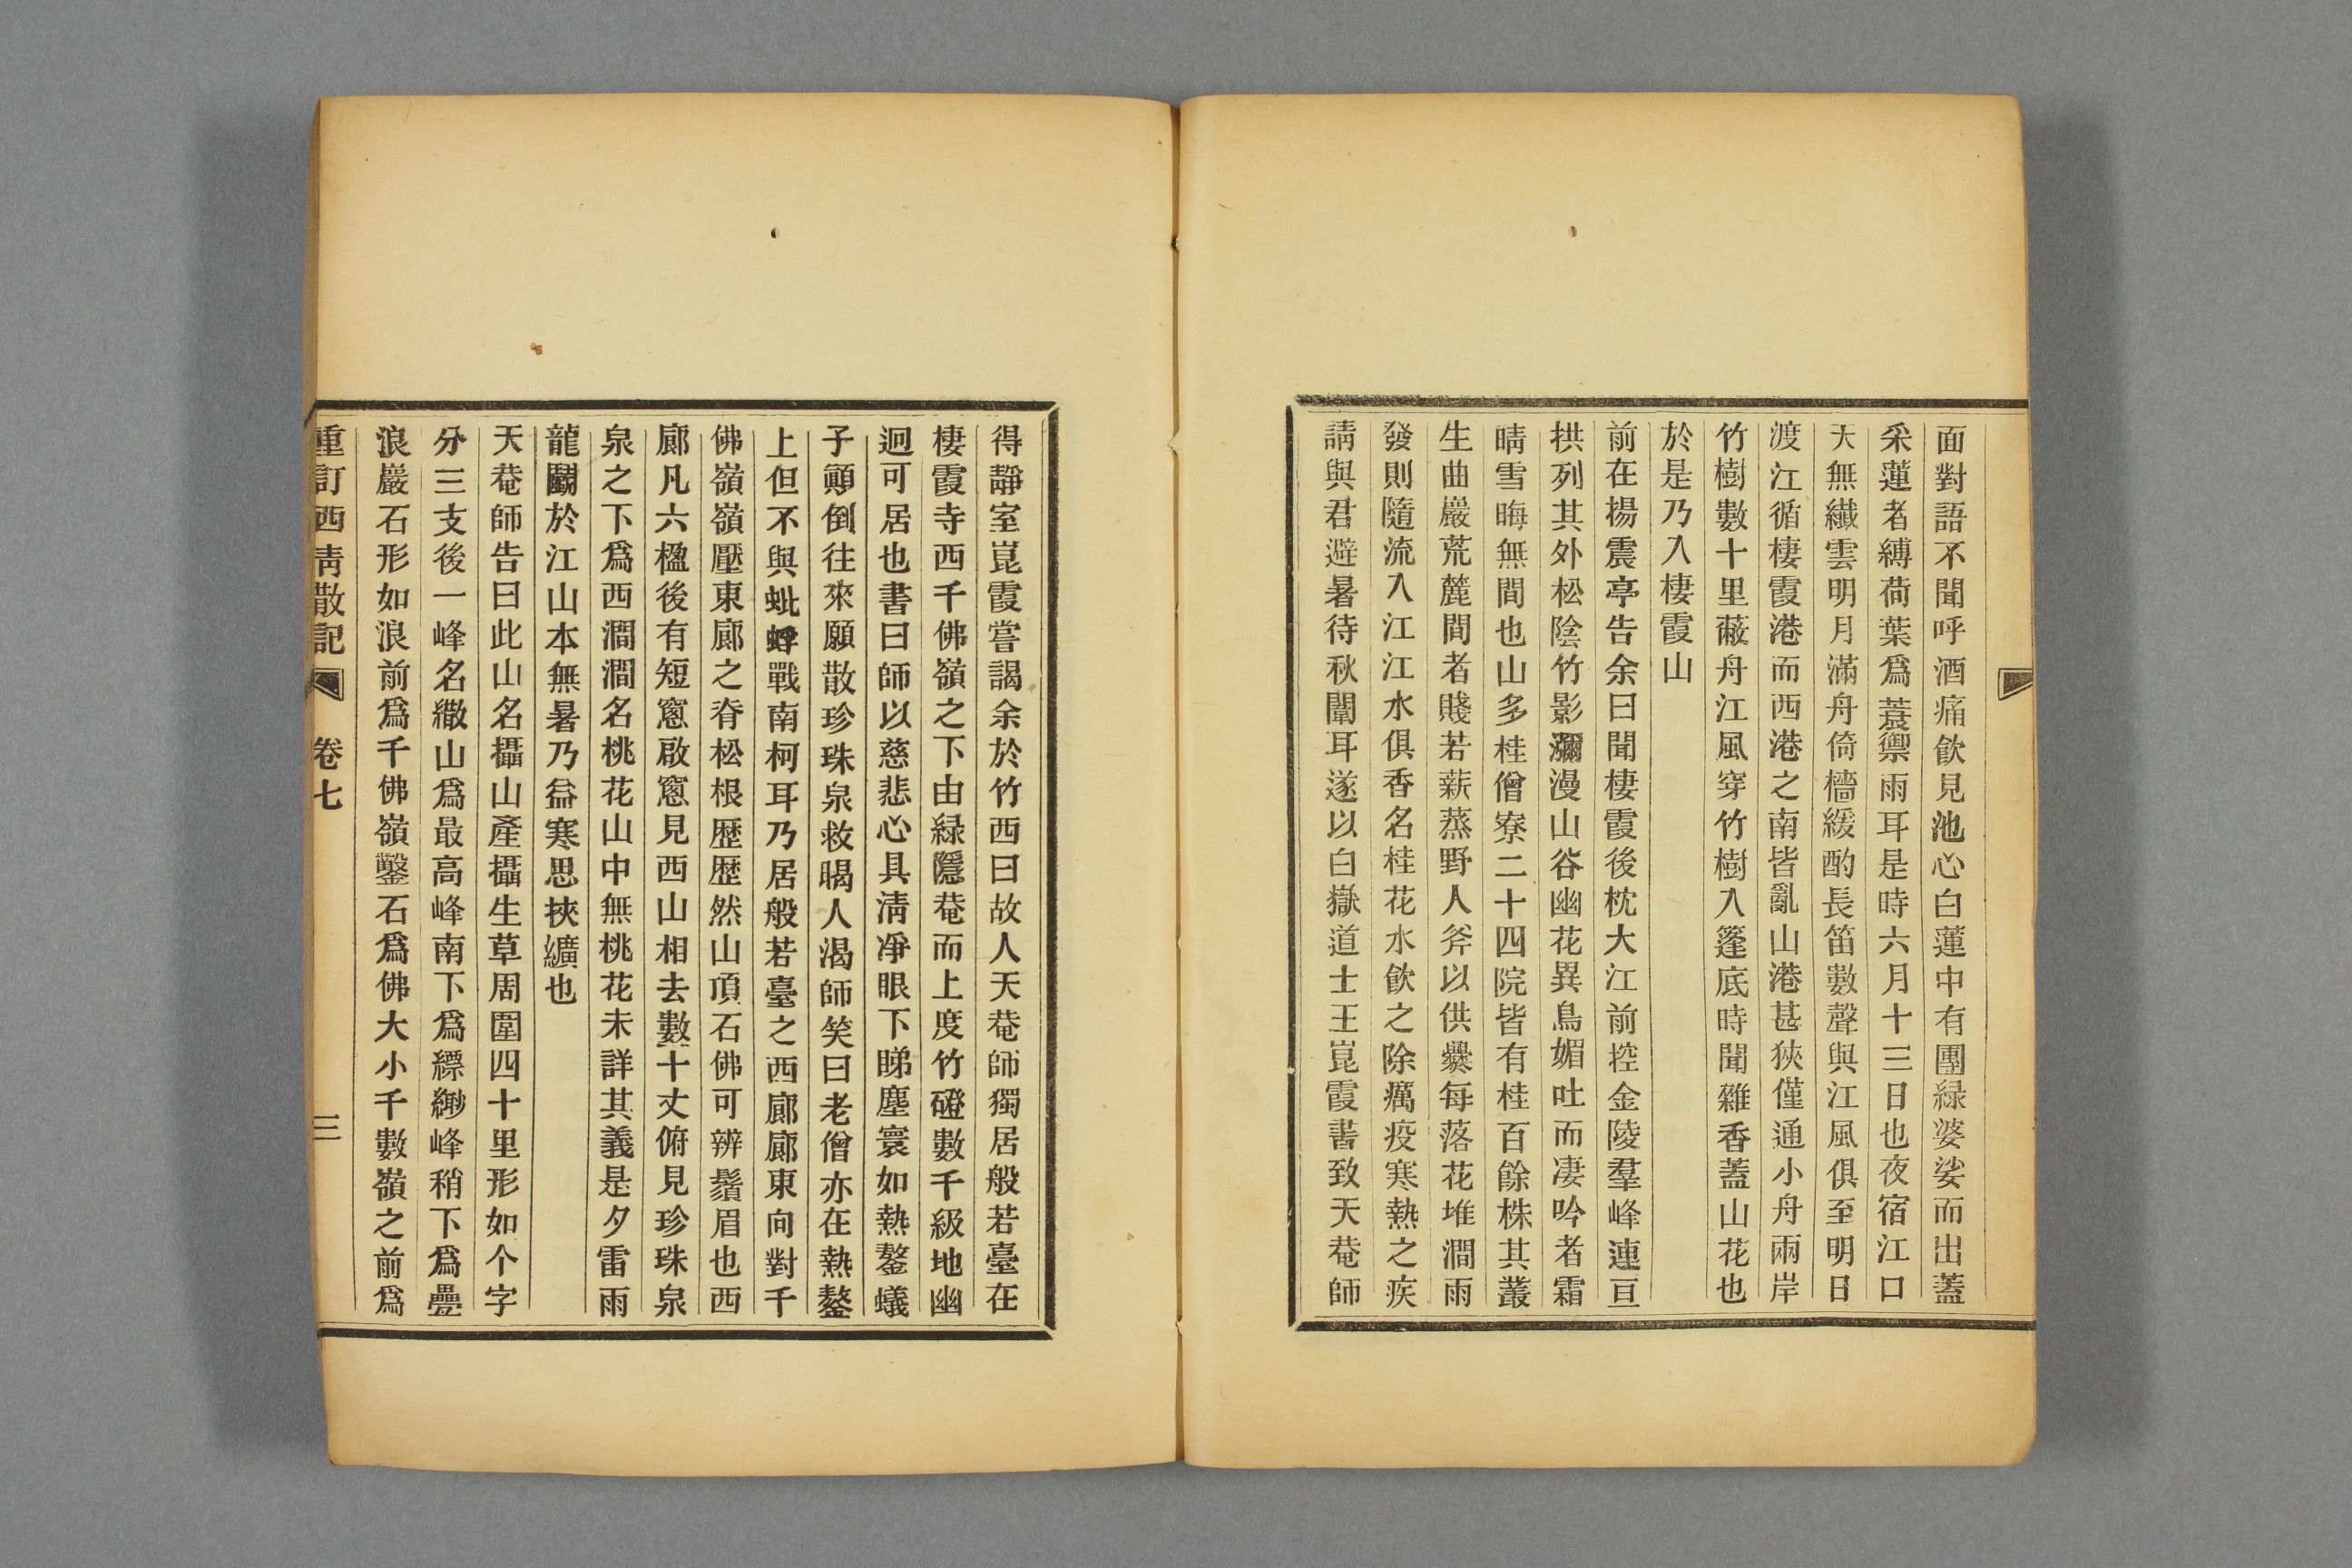 面對語不聞呼酒痛飲見池心白蓮中有團緑婆娑而出蓋
采蓮者縛荷葉爲蓑禦雨耳是時六月十三日也夜宿江口
天無纎雲明月滿舟倚檣緩酌長笛數聲與江風俱至明日
渡江循棲霞港而西港之南皆亂山港甚狹僅通小舟兩岸
竹樹數十里蔽舟江風穿竹樹入篷底時聞雜香蓋山花也
於是乃入棲霞山
前在揚震亭告余曰聞棲霞後枕大江前控金陵羣峰連亘
拱列其外松陰竹影瀰漫山谷幽花異鳥媚吐而凄吟者霜
晴雪晦無間也山多桂僧寮二十四院皆有桂百餘株其叢
生曲巖荒麓間者賤若薪蒸野人斧以供爨每落花堆澗雨
發則隨流入江江水俱香名桂花水飲之除癘疫寒熱之疾
請與君避暑待秋闈耳遂以白嶽道士王崑霞書致天菴師
得靜室崑霞嘗謁余於竹西曰故人天菴師獨居般若臺在
棲霞寺西千佛嶺之下由緑隱菴而上度竹磴數千級地幽
迥可居也書曰師以慈悲心具淸凈眼下睇塵寰如熱鏊蟻
子顚倒往來願散珍珠泉救暍人渴師笑曰老僧亦在熱鏊
上但不與蚍蜉戰南柯耳乃居般若臺之西廊廊東向對千
佛嶺嶺壓東廊之脊松根歷歷然山頂石佛可辨鬚眉也西
廊凡六楹後有短窻啟窻見西山相去數十丈俯見珍珠泉
泉之下爲西澗澗名桃花山中無桃花未詳其義是夕雷雨
龍鬭於江山本無暑乃益寒思挾纊也
天菴師告曰此山名攝山產攝生草周圍四十里形如个字
分三支後一峰名繖山爲最高峰南下爲縹緲峰稍下爲疊
浪巖石形如浪前爲千佛嶺鑿石爲佛大小千數嶺之前爲
重訂西靑散記 卷七 三